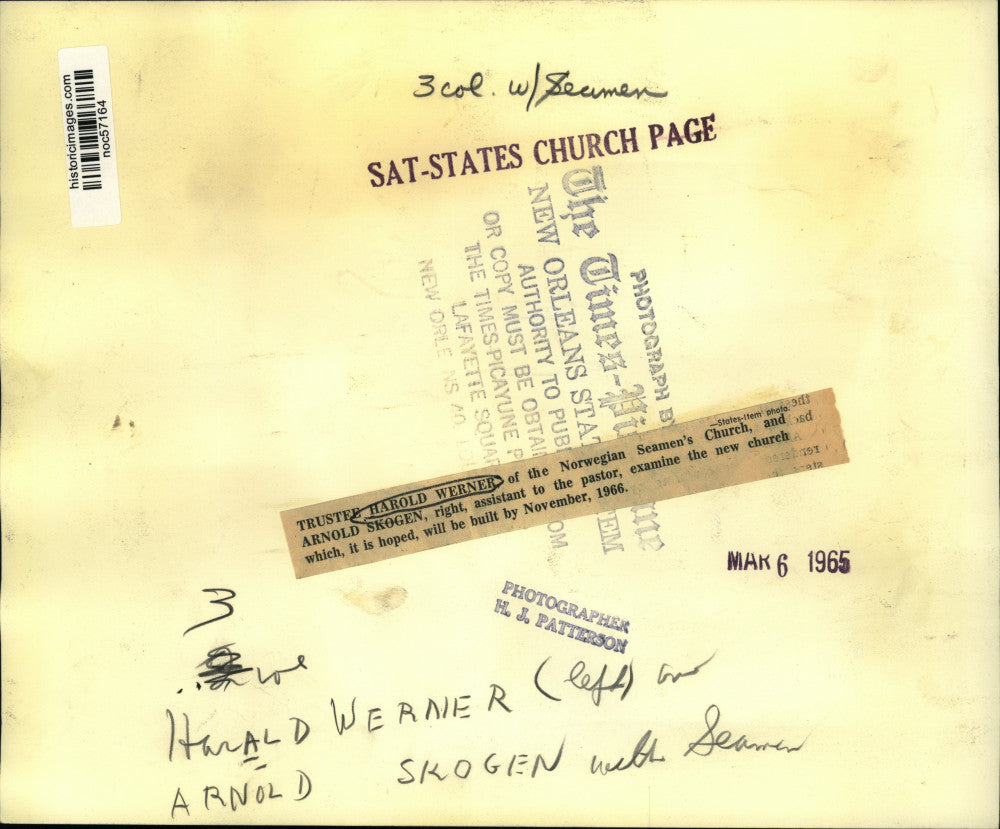 historicimages.com
noc57164
3 col. w/ Seamen
SAT-STATES CHURCH PAGE
PHOTOGRAPH B
The Times-Pi
NEW ORLEANS STAT
AUTHORITY TO PUB
OR COPY MUST BE OBTAI
THE TIMES-PICAYUNE P
LAFAYETTE SQUAR
NEW ORLE NS 40,
TEM
OM
—States-Item photo.
TRUSTEE HAROLD WERNER, of the Norwegian Seamen's Church, and
ARNOLD SKOGEN, right, assistant to the pastor, examine the new church
which, it is hoped, will be built by November, 1966.
MAR 6 1965
PHOTOGRAPHER
H. J. PATTERSON
3
HarALD WERNER (left) and
ARNOLD SKOGEN with Seamen